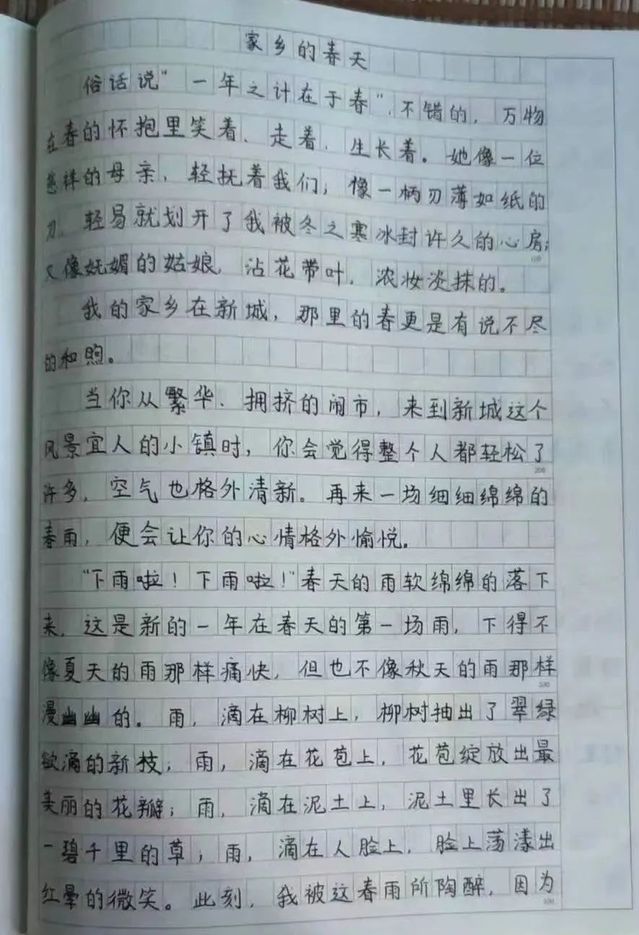 家乡的春天
俗话说"一年之计在于春",不错的,万物
在春的怀抱里笑着、走着、生长着。她像一位
慈祥的母亲,轻抚着我们;像一柄刃薄如纸的
刀,轻易就划开了我被冬之寒冰封许久的心房;
又像妩媚的姑娘,沾花带叶,浓妆淡抹的。
我的家乡在新城,那里的春更是有说不尽
的和煦。
当你从繁华、拥挤的闹市,来到新城这个
风景宜人的小镇时,你会觉得整个人都轻松了
许多,空气也格外清新。再来一场细细绵绵的
春雨,便会让你的心情格外愉悦。
"下雨啦!下雨啦!"春天的雨软绵绵的落下
来,这是新的一年在春天的第一场雨,下得不
像夏天的雨那样痛快,但也不像秋天的雨那样
漫幽幽的。雨,滴在柳树上,柳树抽出了翠绿
欲滴的新枝;雨,滴在花苞上,花苞绽放出最
美丽的花瓣;雨,滴在泥土上,泥土里长出了
一碧千里的草;雨,滴在人脸上,脸上荡漾出
红晕的微笑。此刻,我被这春雨所陶醉,因为